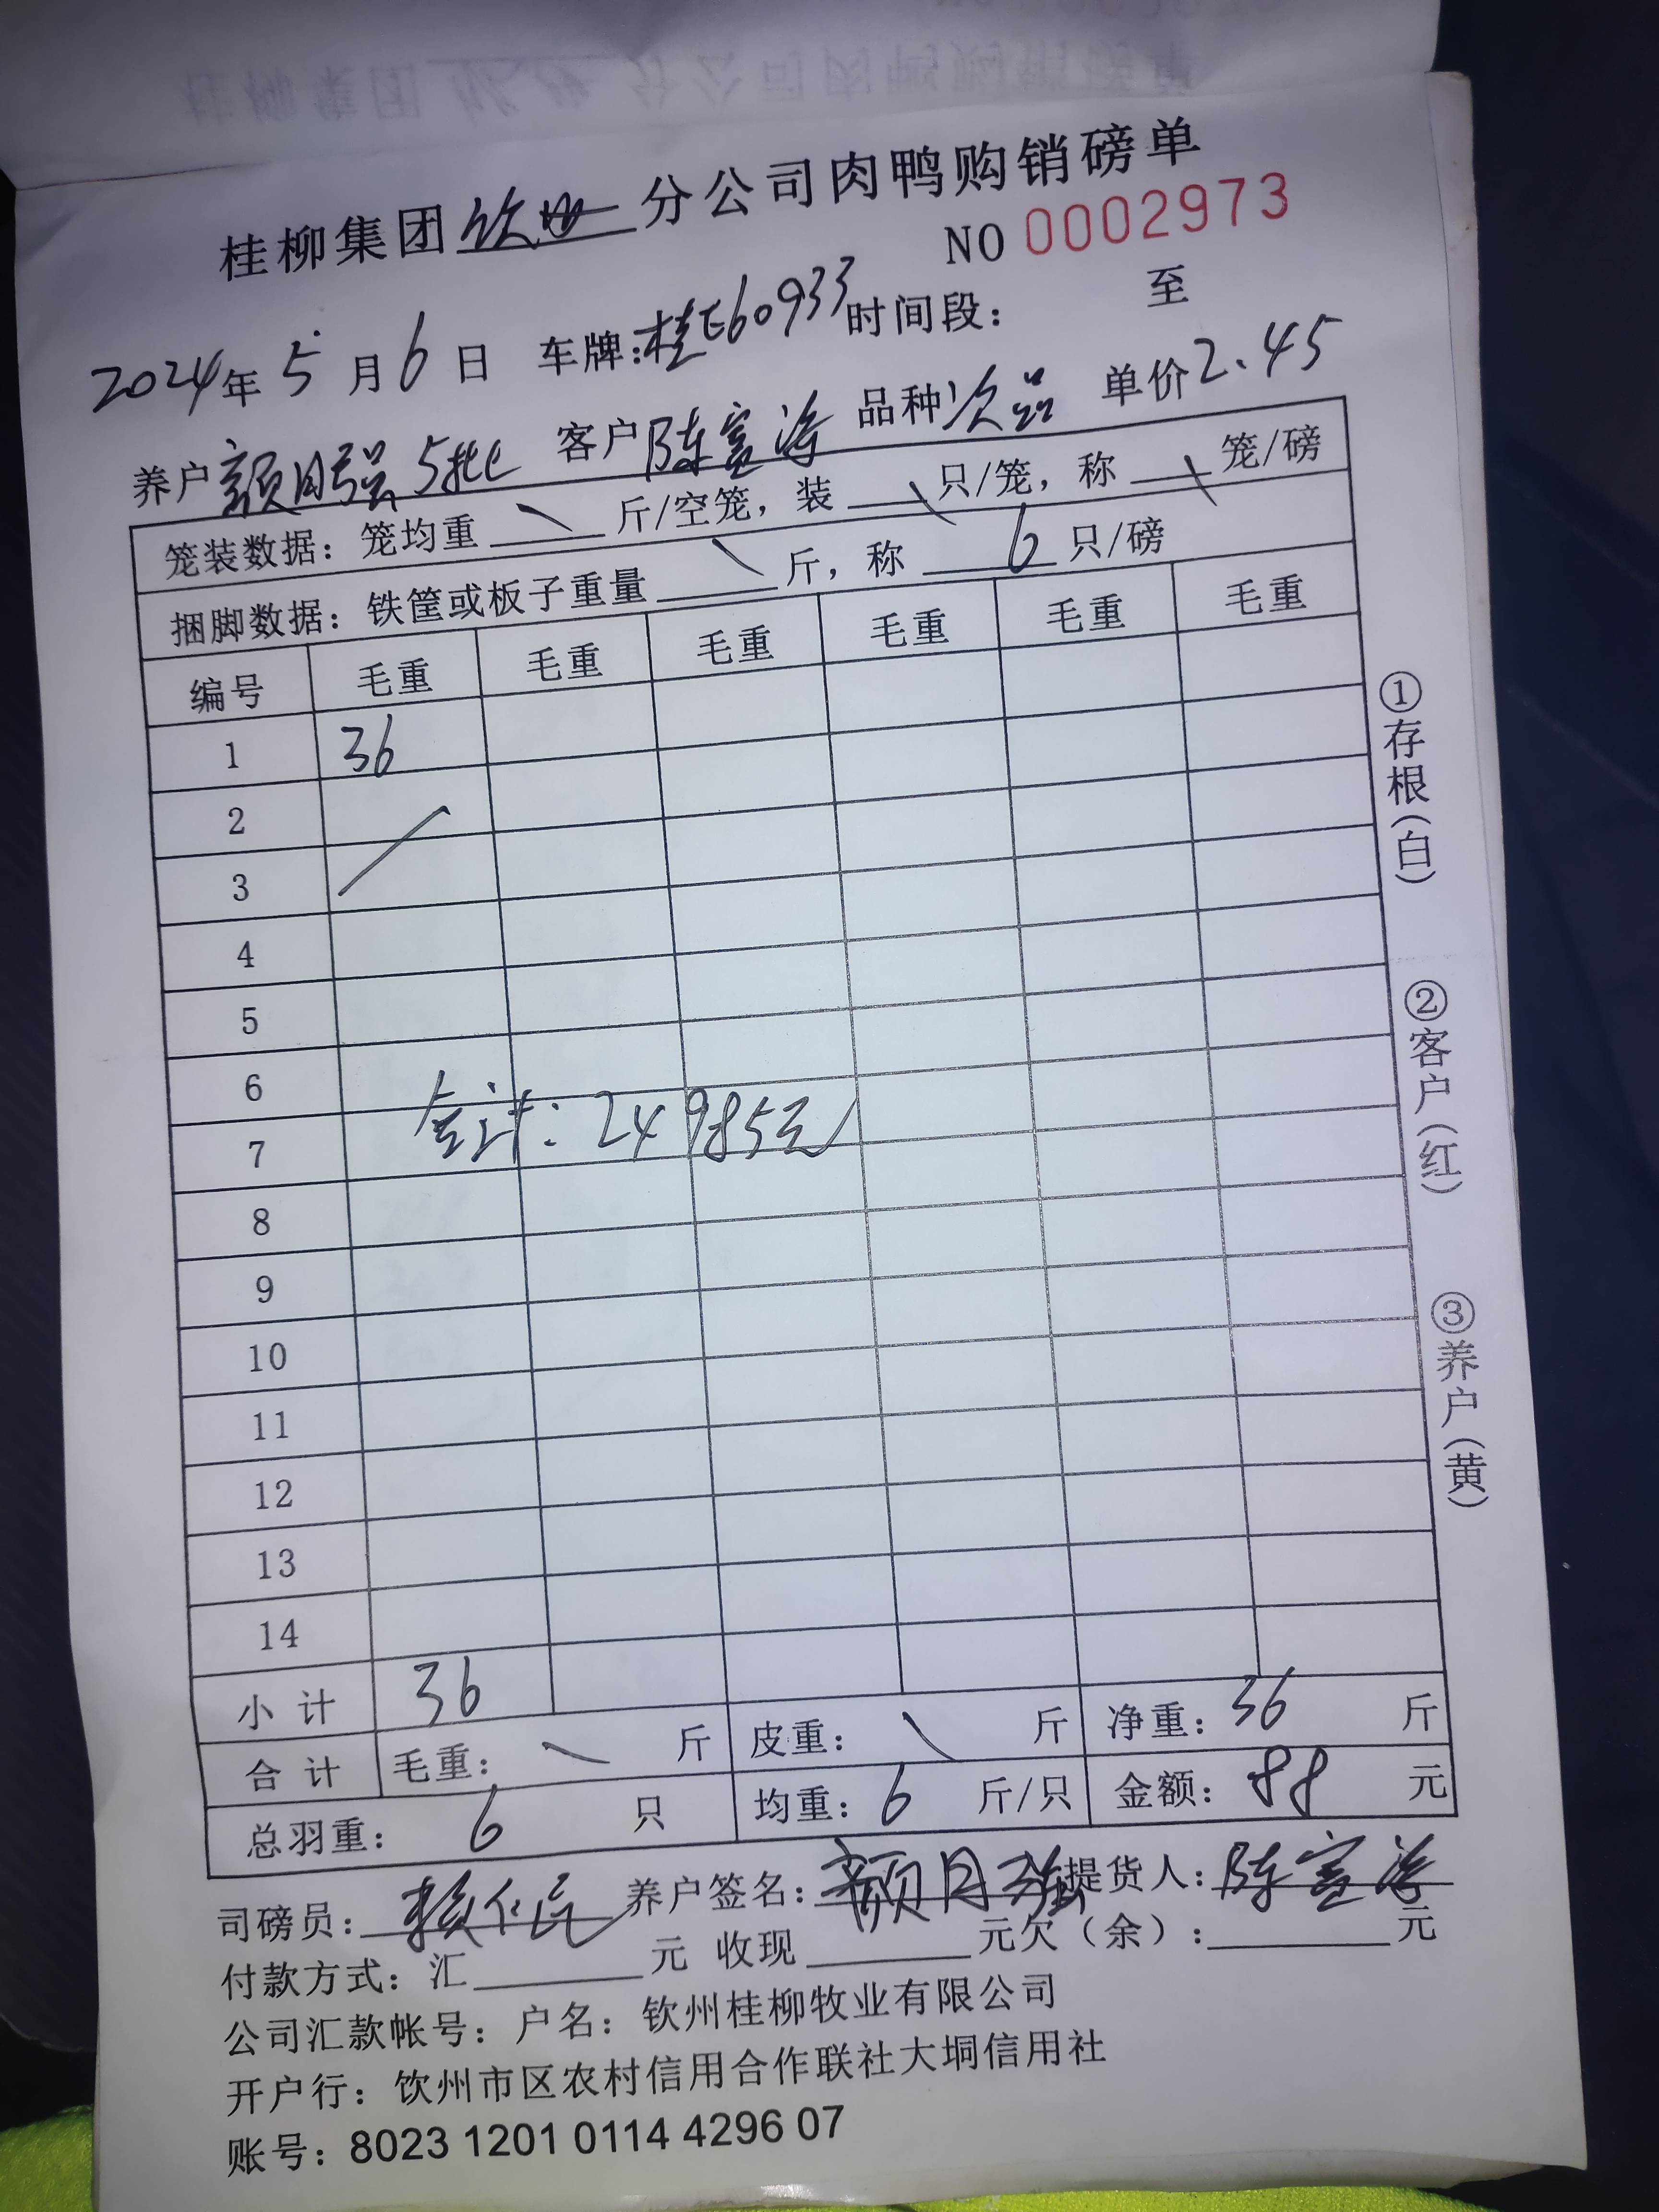 桂柳集团钦州分公司肉鸭购销磅单
NO 0002973
2024年5月6日 车牌:桂E60933时间段: 至
养户颜月强5批 客户陈富海 品种次品 单价2.45
笼装数据:笼均重 \ 斤/空笼,装 \ 只/笼,称 \ 笼/磅
捆脚数据:铁筐或板子重量 \ 斤,称 6 只/磅
编号 毛重 毛重 毛重 毛重 毛重 毛重
1 36
2
3
4
5
6
合计:24985元
7
8
9
10
11
12
13
14
小计 36
合计 毛重: \ 斤 皮重: \ 斤 净重:36 斤
总羽重: 6 只 均重:6 斤/只 金额:88 元
司磅员:赖仁民 养户签名:颜月强 提货人:陈富海
付款方式:汇 元 收现 元欠(余): 元
公司汇款帐号:户名:钦州桂柳牧业有限公司
开户行:钦州市区农村信用合作联社大垌信用社
账号:8023 1201 0114 4296 07
①存根(白)
②客户(红)
③养户(黄)